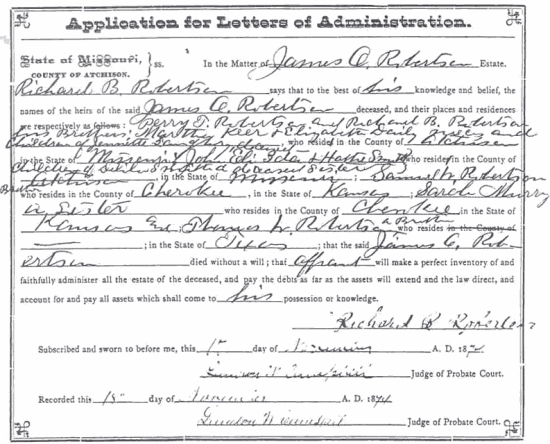 Application for Letters of Administration.
State of Missouri,
COUNTY OF ATCHISON. } ss.
In the Matter of James O. Robertson Estate.
Richard B. Robertson says that to the best of his knowledge and belief, the
names of the heirs of the said James O. Robertson deceased, and their places and residences
are respectively as follows: Perry T. Robertson and Richard B. Robertson
his Brothers; Martha Keer & Elizabeth Daily neices and
Children of who resides in the County of Atchison
in the State of Missouri; John Eli & Hattie Smith who resides in the County of
Children of deceased Sister
Atchison, in the State of Missouri; Samuel W. Robertson
Brother
who resides in the County of Cherokee, in the State of Kansas; Sarah Murry
a Sister who resides in the County of Cherokee in the State of
Kansas and Thomas W. Robertson a Brother who resides in the County of
; in the State of Texas; that the said James O. Rob-
ertson died without a will; that affiant will make a perfect inventory of and
faithfully administer all the estate of the deceased, and pay the debts as far as the assets will extend and the law direct, and
account for and pay all assets which shall come to his possession or knowledge.
Richard B Robertson
Subscribed and sworn to before me, this day of A. D. 187
Judge of Probate Court.
Recorded this day of A. D. 187
Judge of Probate Court.